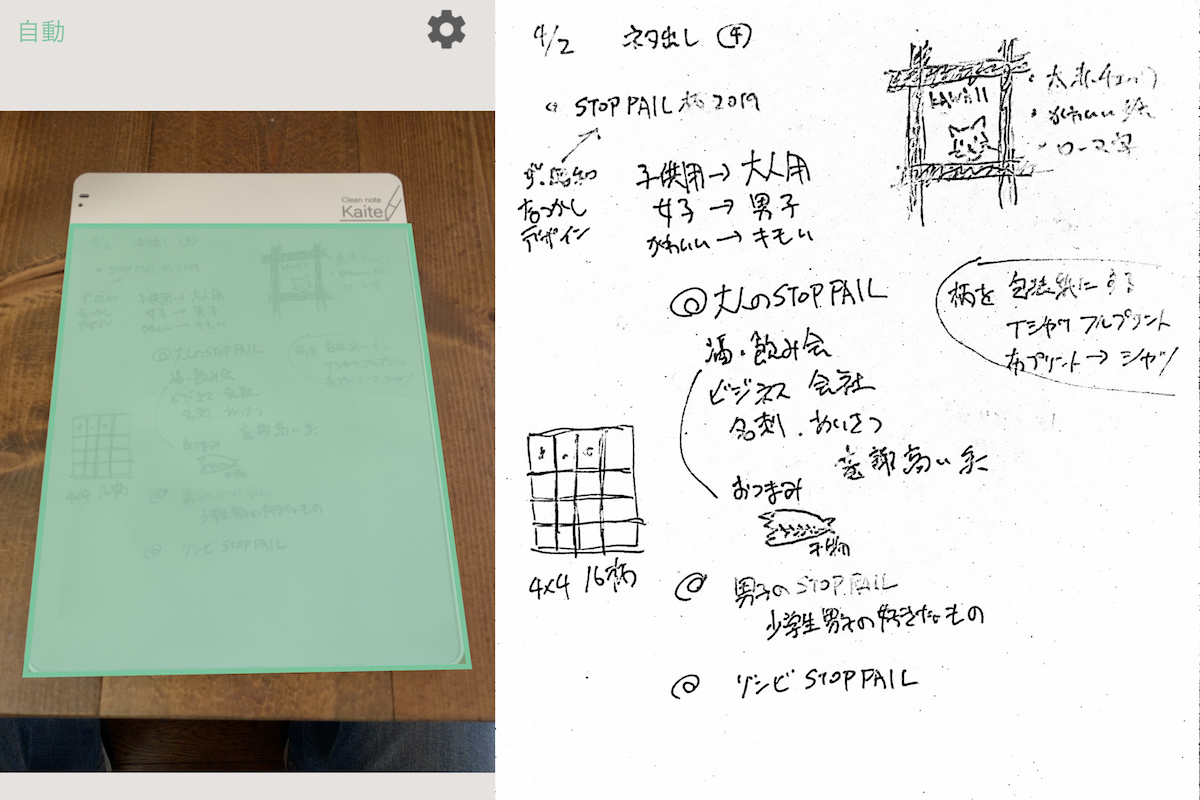 自動
Clean note
Kaite
4/2 ネタ出し ④
STOP PAIL 柄 2019
なつかし
デザイン
子供用→大人用
女子→男子
かわいい→キモい
KAWAII
・ローマ字
◎大人のSTOP PAIL
酒・飲み会
ビジネス 会社
名刺・あいさつ
意識高い系
おつまみ
干物
柄を 包装紙にする
Tシャツ フルプリント
布プリント→シャツ
4×4 16柄
◎ 男子のSTOP PAIL
少学生男子の好きなもの
◎ ゾンビ STOP PAIL